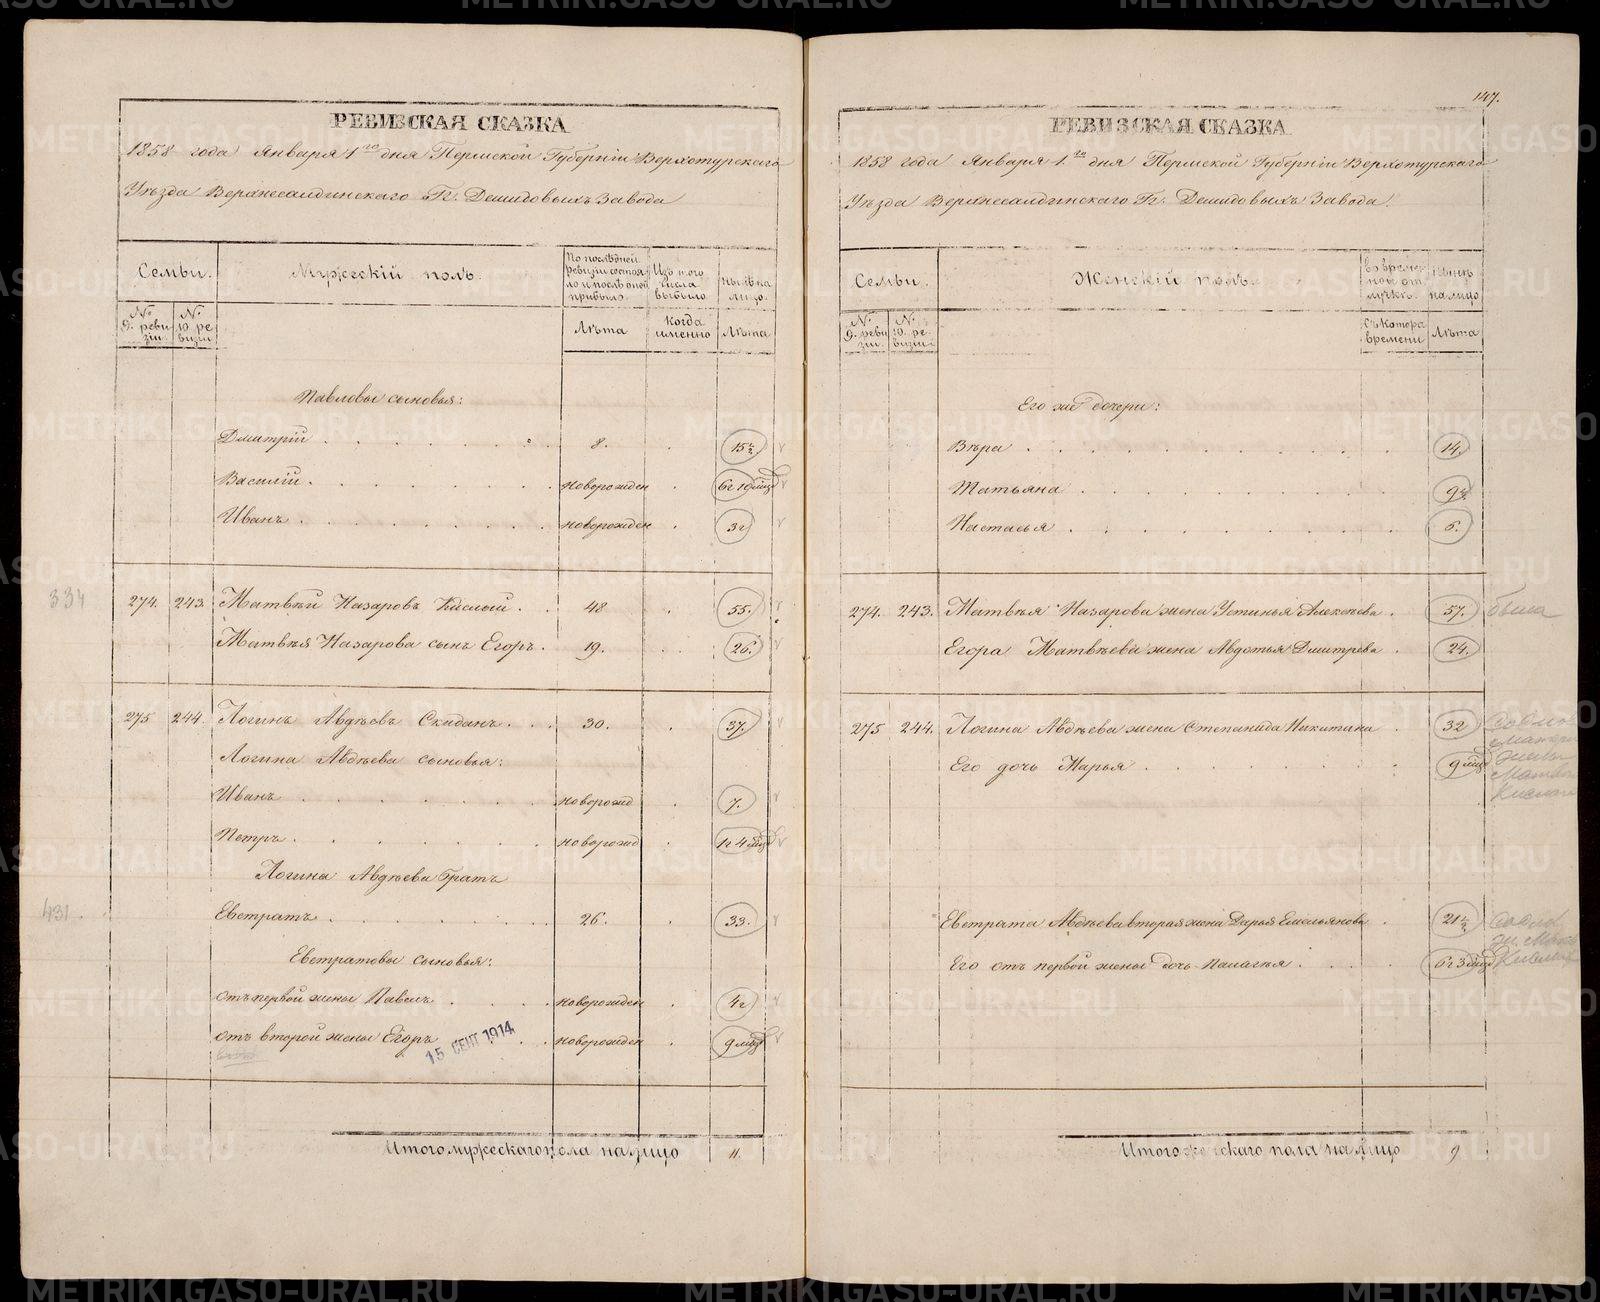 РЕВИЗСКАЯ СКАЗКА
1858 года Января 1го дня Пермской Губерніи Верхотурскаго
Уѣзда Верхнесалдинскаго Гг. Демидовыхъ Завода
Семьи. Мужескій полъ.
По послѣдней ревизіи состояло и послѣ оной прибыло.
Изъ того числа выбыло
Нынѣ на лицо.
№ 9. ревизіи
№ 10 ревизіи
Лѣта
Когда именно
Лѣта
Павловы сыновья:
Дмитрій 8. 15½
Василій новорожден 6г 10 мцѣ
Иванъ новорожден 3г
334
274. 243. Матвѣй Назаровъ Кислой 48 55.
Матвѣя Назарова сынъ Егоръ. 19. 26.
275 244. Логинъ Авдѣевъ Скиданъ. 30. 37.
Логина Авдѣева сыновья:
Иванъ новорожд 7.
Петръ новорожд 1г 4 мцѣ
Логина Авдѣева братъ
431.
Евстратъ 26. 33.
Евстратовы сыновья:
отъ первой жены Павелъ новорожден 4г
отъ второй жены Егоръ новорожден 9 мцѣ
15 СЕНТ 1914
Итого мужескаго пола на лицо 11.
147.
РЕВИЗСКАЯ СКАЗКА
1858 года Января 1го дня Пермской Губерніи Верхотурскаго
Уѣзда Верхнесалдинскаго Гг. Демидовыхъ Завода.
Семьи. Женскій полъ.
Во временной отлучкѣ.
Нынѣ на лицо
№ 9. ревизіи
№ 10. ревизіи
Съ котора времени
Лѣта
Его же дочери:
Вѣра 14.
Татьяна 9½
Настасья 6.
274. 243. Матвѣя Назарова жена Устинья Алексѣева 57.
Егора Матвѣева жена Авдотья Дмитрева 24.
275 244. Логина Авдѣева жена Степанида Никитина 32
Его дочь Марья 9 мцѣ
Евстрата Авдѣева вторая жена Дарья Емельянова 21½
Его отъ первой жены дочь Палагья 6г 3 мцѣ
Итого женскаго пола на лицо 9
METRIKI.GASO-URAL.RU